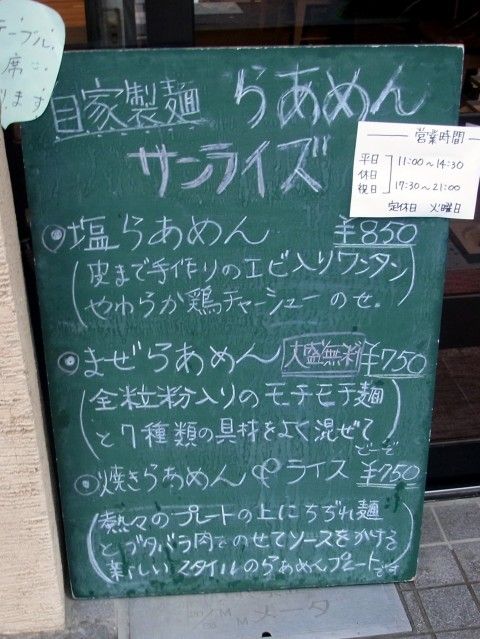 テーブル
席
ります
自家製麺 らあめん
サンライズ
営業時間
平日
休日
祝日
11:00~14:30
17:30~21:00
定休日 火曜日
塩らあめん ¥850
(皮まで手作りのエビ入りワンタン
やわらか鶏チャーシューのせ。)
まぜらあめん 大盛無料 ¥750
(全粒粉入りのモチモチ麺
と7種類の具材をよく混ぜて
どーぞ)
焼きらあめん&ライス ¥750
(熱々のプレートの上にちぢれ麺
とブタバラ肉をのせてソースをかける
新しいスタイルのらあめんプレートです)
メータ